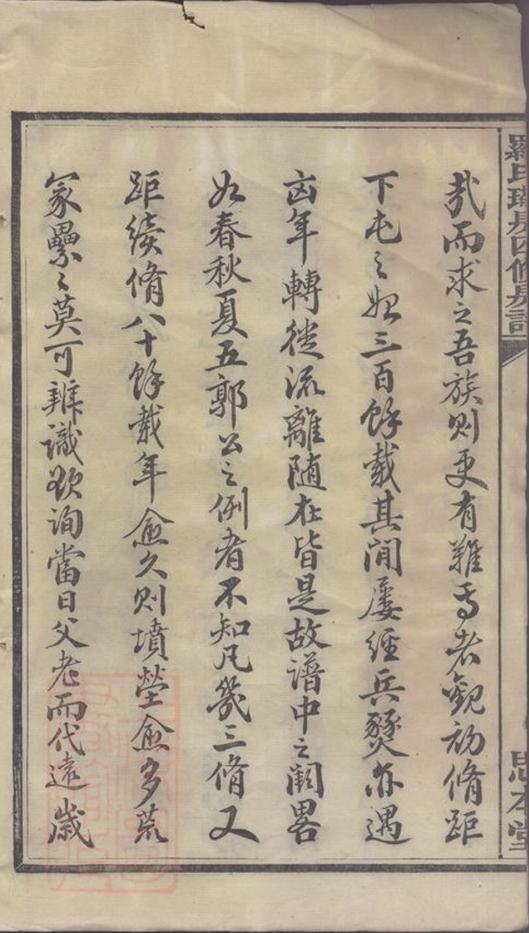 哉而求之吾族則更有難焉者觀初脩距
下屯之始三百餘載其間屢經兵燹亦遇
凶年轉徙流離隨在皆是故譜中之闕畧
如春秋夏五郭公之例者不知凡幾三脩又
距續脩八十餘載年愈久則墳塋愈多荒
冢纍〻莫可辨識欲詢當日父老而代遠歲